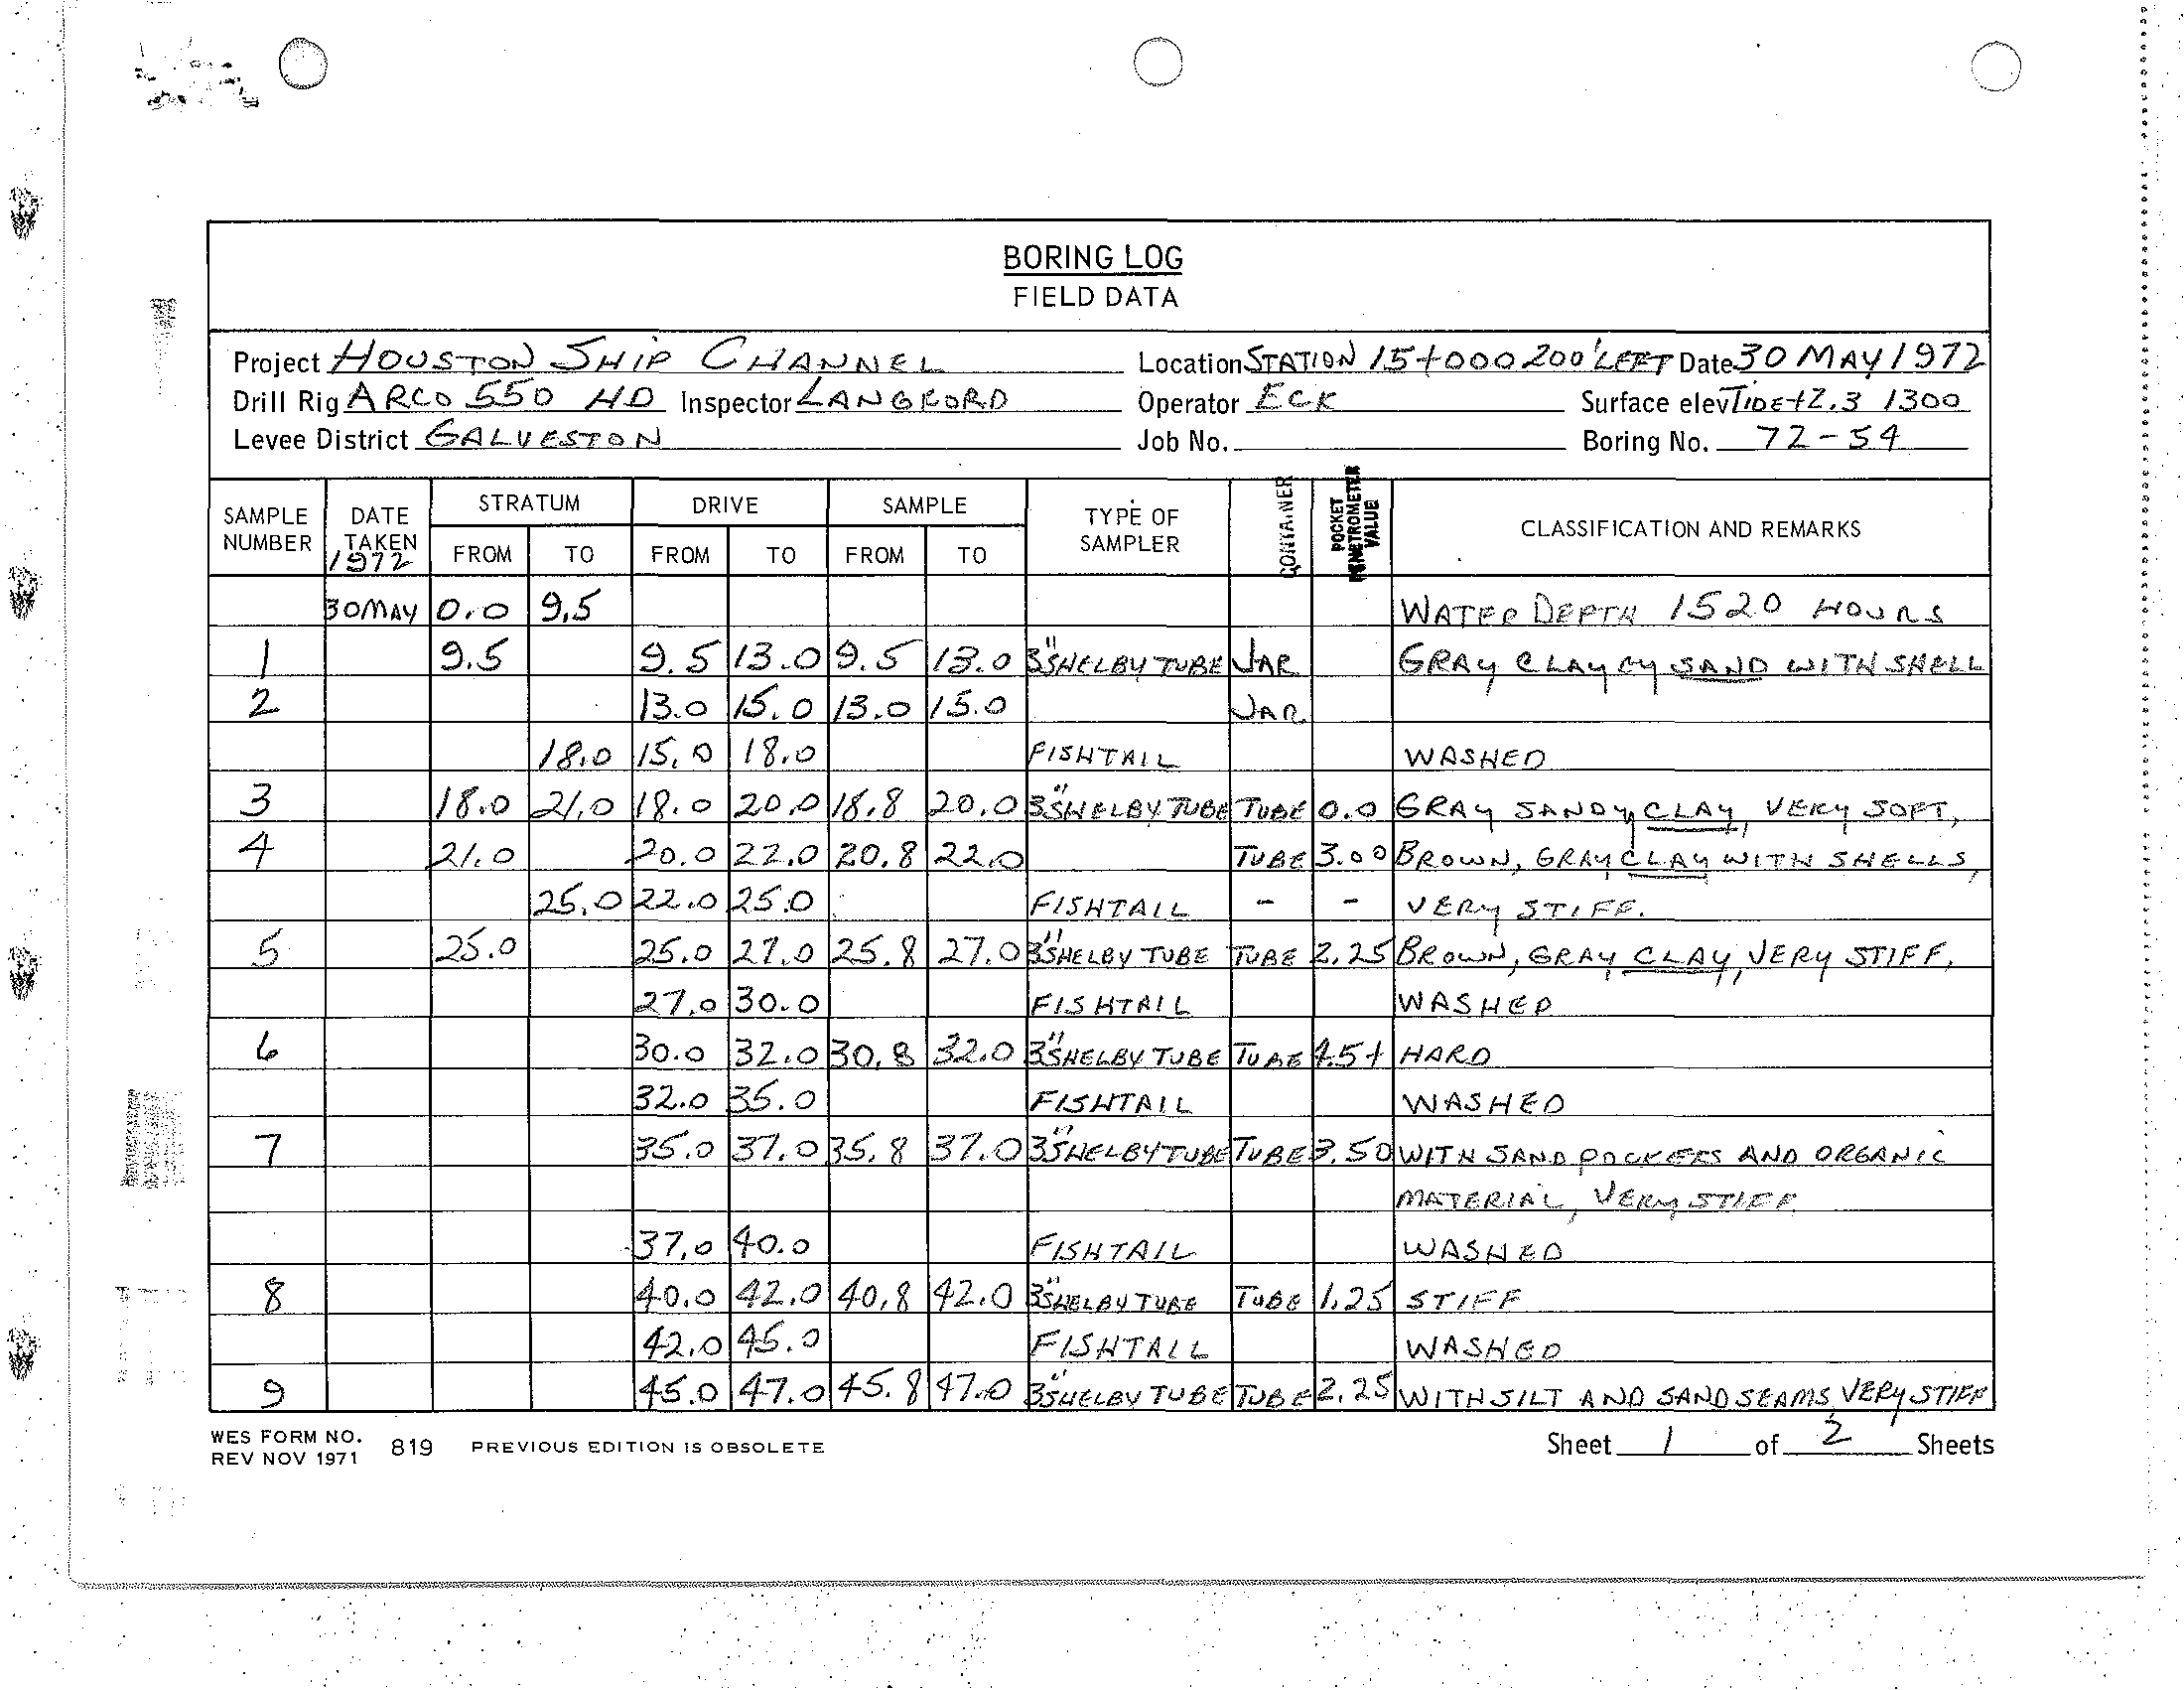 BORING LOG
FIELD DATA
Project HOUSTON SHIP CHANNEL Location STATION 15+000 200' LEFT Date 30 MAY 1972
Drill Rig ARCO 550 HD Inspector LANGFORD Operator ECK Surface elev TIDE +2.3 1300
Levee District GALVESTON Job No. Boring No. 72-54
SAMPLE NUMBER DATE TAKEN 1972 STRATUM FROM TO DRIVE FROM TO SAMPLE FROM TO TYPE OF SAMPLER CONTAINER POCKET PENETROMETER VALUE CLASSIFICATION AND REMARKS
30 MAY 0.0 9.5 WATER DEPTH 1520 HOURS
1 9.5 9.5 13.0 9.5 13.0 3" SHELBY TUBE JAR GRAY CLAYEY SAND WITH SHELL
2 13.0 15.0 13.0 15.0 JAR
18.0 15.0 18.0 FISHTAIL WASHED
3 18.0 21.0 18.0 20.0 18.8 20.0 3" SHELBY TUBE TUBE 0.0 GRAY SANDY CLAY, VERY SOFT,
4 21.0 20.0 22.0 20.8 22.0 TUBE 3.00 BROWN, GRAY CLAY WITH SHELLS,
25.0 22.0 25.0 FISHTAIL - - VERY STIFF.
5 25.0 25.0 27.0 25.8 27.0 3" SHELBY TUBE TUBE 2.25 BROWN, GRAY CLAY, VERY STIFF,
27.0 30.0 FISHTAIL WASHED
6 30.0 32.0 30.8 32.0 3" SHELBY TUBE TUBE 4.5+ HARD
32.0 35.0 FISHTAIL WASHED
7 35.0 37.0 35.8 37.0 3" SHELBY TUBE TUBE 3.50 WITH SAND POCKETS AND ORGANIC
MATERIAL, VERY STIFF
37.0 40.0 FISHTAIL WASHED
8 40.0 42.0 40.8 42.0 3" SHELBY TUBE TUBE 1.25 STIFF
42.0 45.0 FISHTAIL WASHED
9 45.0 47.0 45.8 47.0 3" SHELBY TUBE TUBE 2.25 WITH SILT AND SAND SEAMS, VERY STIFF
WES FORM NO. 819 PREVIOUS EDITION IS OBSOLETE Sheet 1 of 2 Sheets
REV NOV 1971